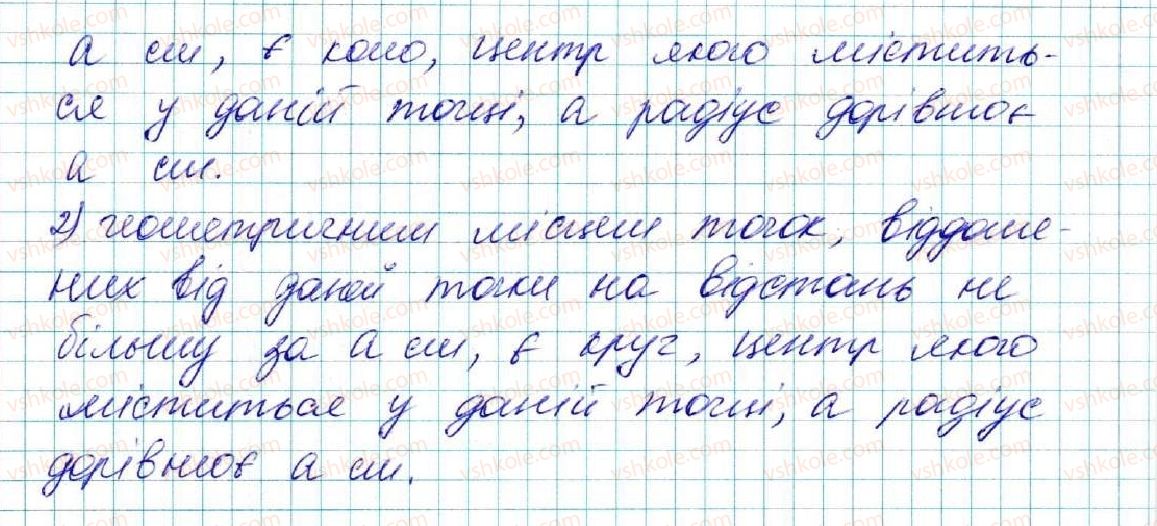 а см, є коло, центр якого містить-
ся у даній точці, а радіус дорівнює
а см.
2) геометричним місцем точок, віддале-
них від даної точки на відстань не
більшу за а см, є круг, центр якого
міститься у даній точці, а радіус
дорівнює а см.